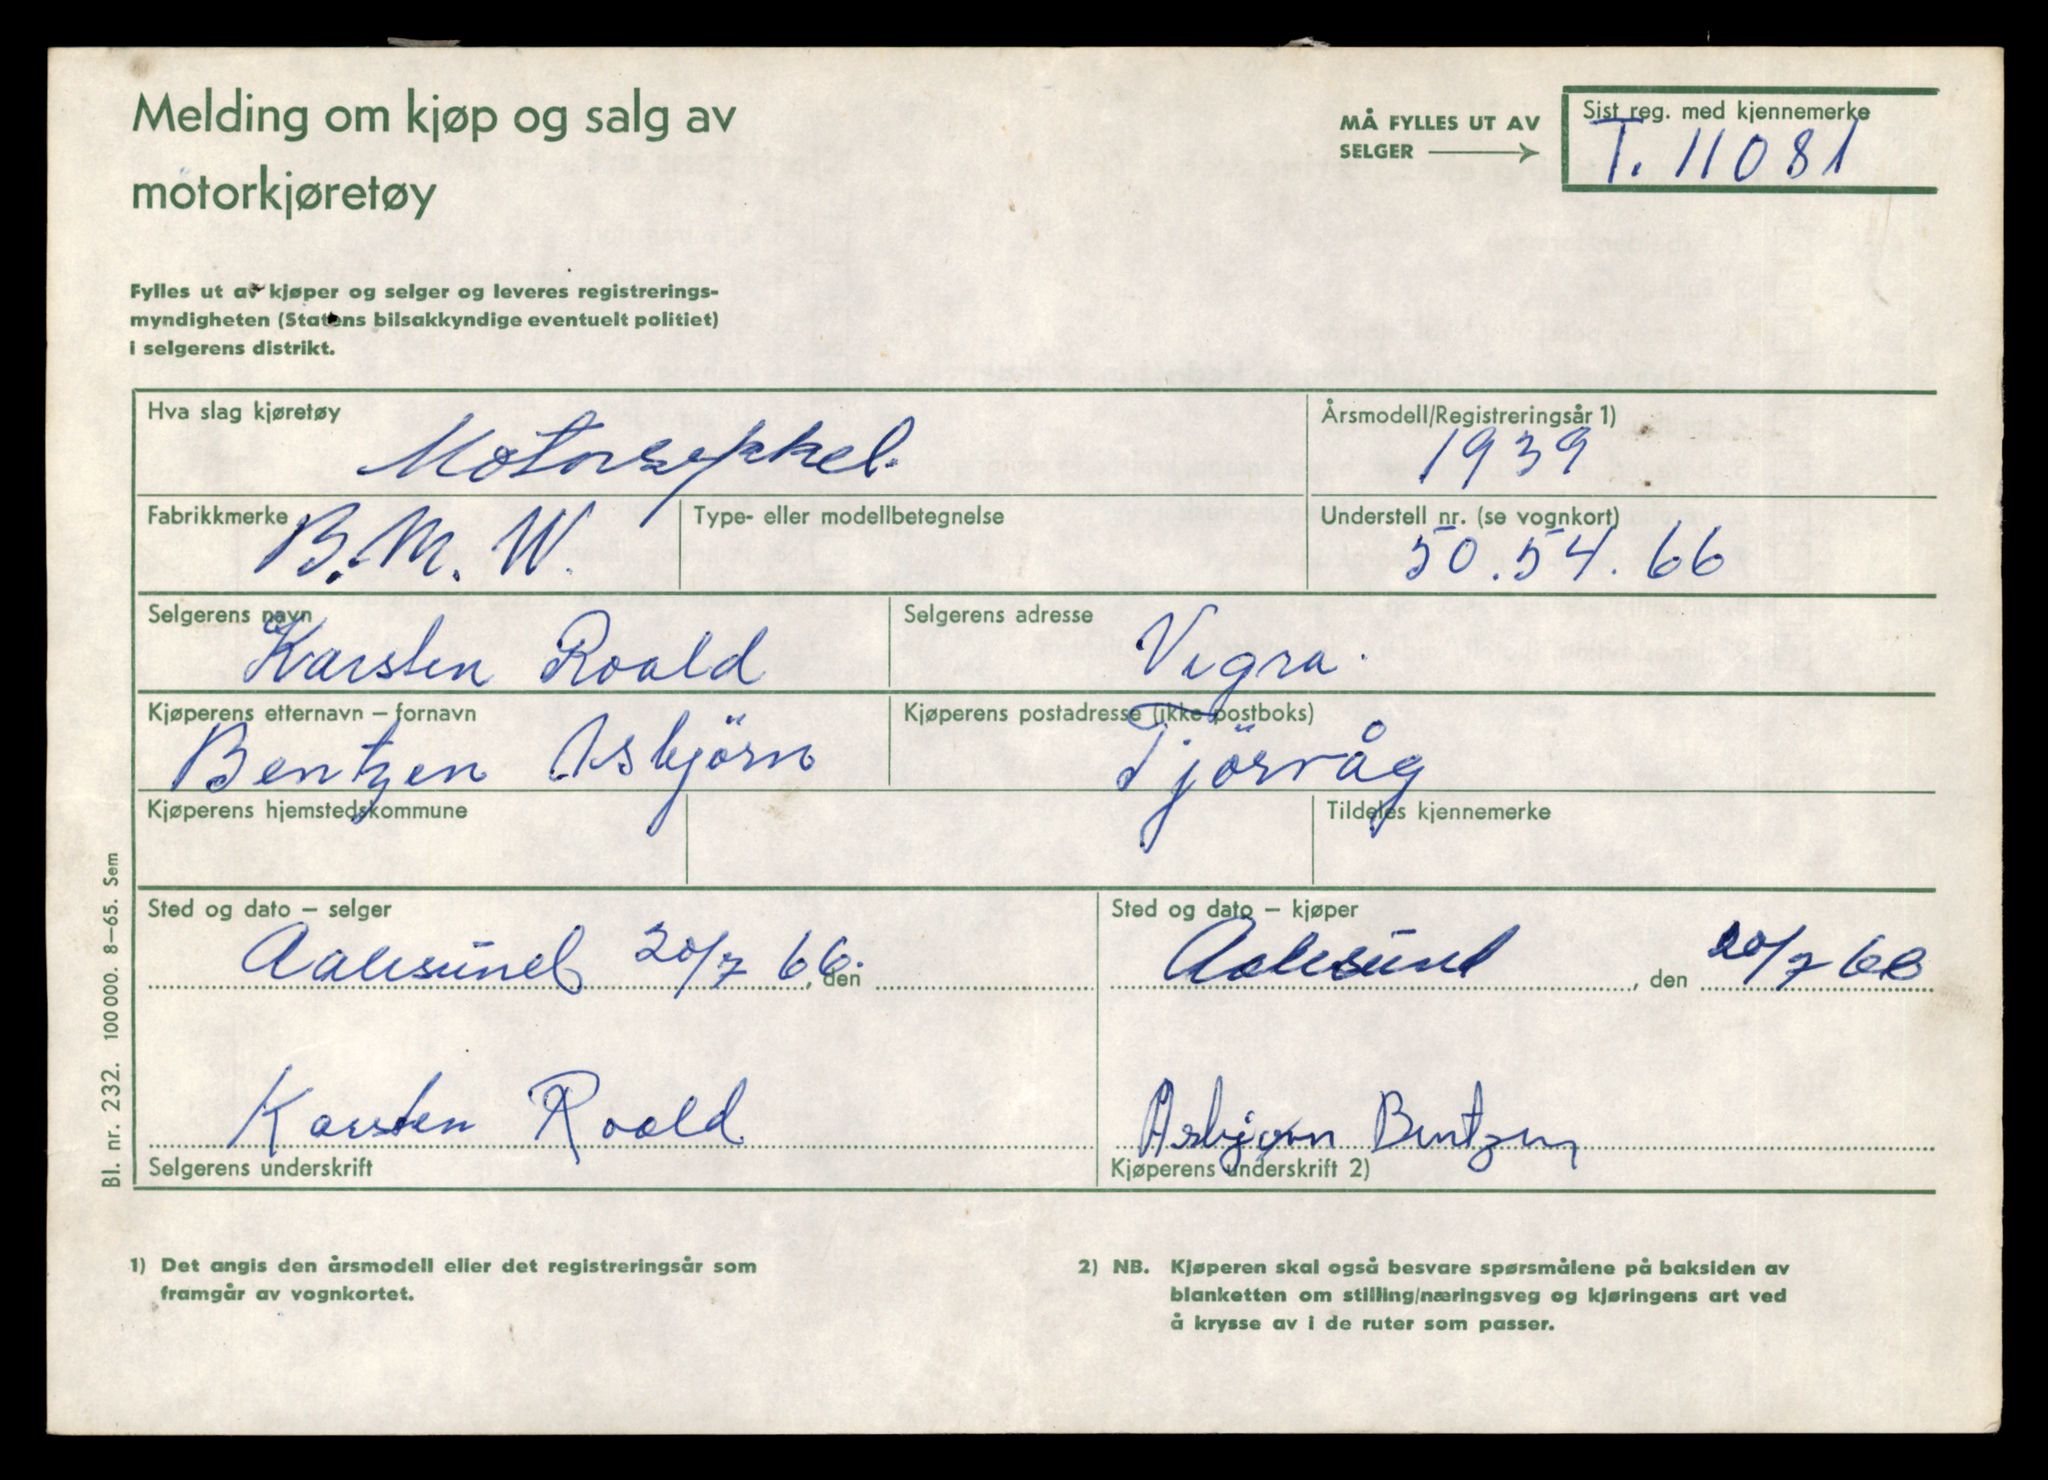 Melding om kjøp og salg av
motorkjøretøy
MÅ FYLLES UT AV
SELGER
Sist reg. med kjennemerke
T. 11081
Fylles ut av kjøper og selger og leveres registrerings-
myndigheten (Statens bilsakkyndige eventuelt politiet)
i selgerens distrikt.
Hva slag kjøretøy
Motorsykkel.
Årsmodell/Registreringsår 1)
1939
Fabrikkmerke
B.M.W.
Type- eller modellbetegnelse
Understell nr. (se vognkort)
50.54.66
Selgerens navn
Karsten Roald
Selgerens adresse
Vigra.
Kjøperens etternavn – fornavn
Bentzen Asbjörn
Kjøperens postadresse (ikke postboks)
Tjörvåg
Kjøperens hjemstedskommune
Tildeles kjennemerke
Sted og dato – selger
Aalesund 20/7 66. , den
Sted og dato – kjøper
Aalesund , den 20/7 66
Karsten Roald
Selgerens underskrift
Asbjørn Bentzen
Kjøperens underskrift 2)
Bl. nr. 232. 100 000. 8–65. Sem
1) Det angis den årsmodell eller det registreringsår som
framgår av vognkortet.
2) NB. Kjøperen skal også besvare spørsmålene på baksiden av
blanketten om stilling/næringsveg og kjøringens art ved
å krysse av i de ruter som passer.